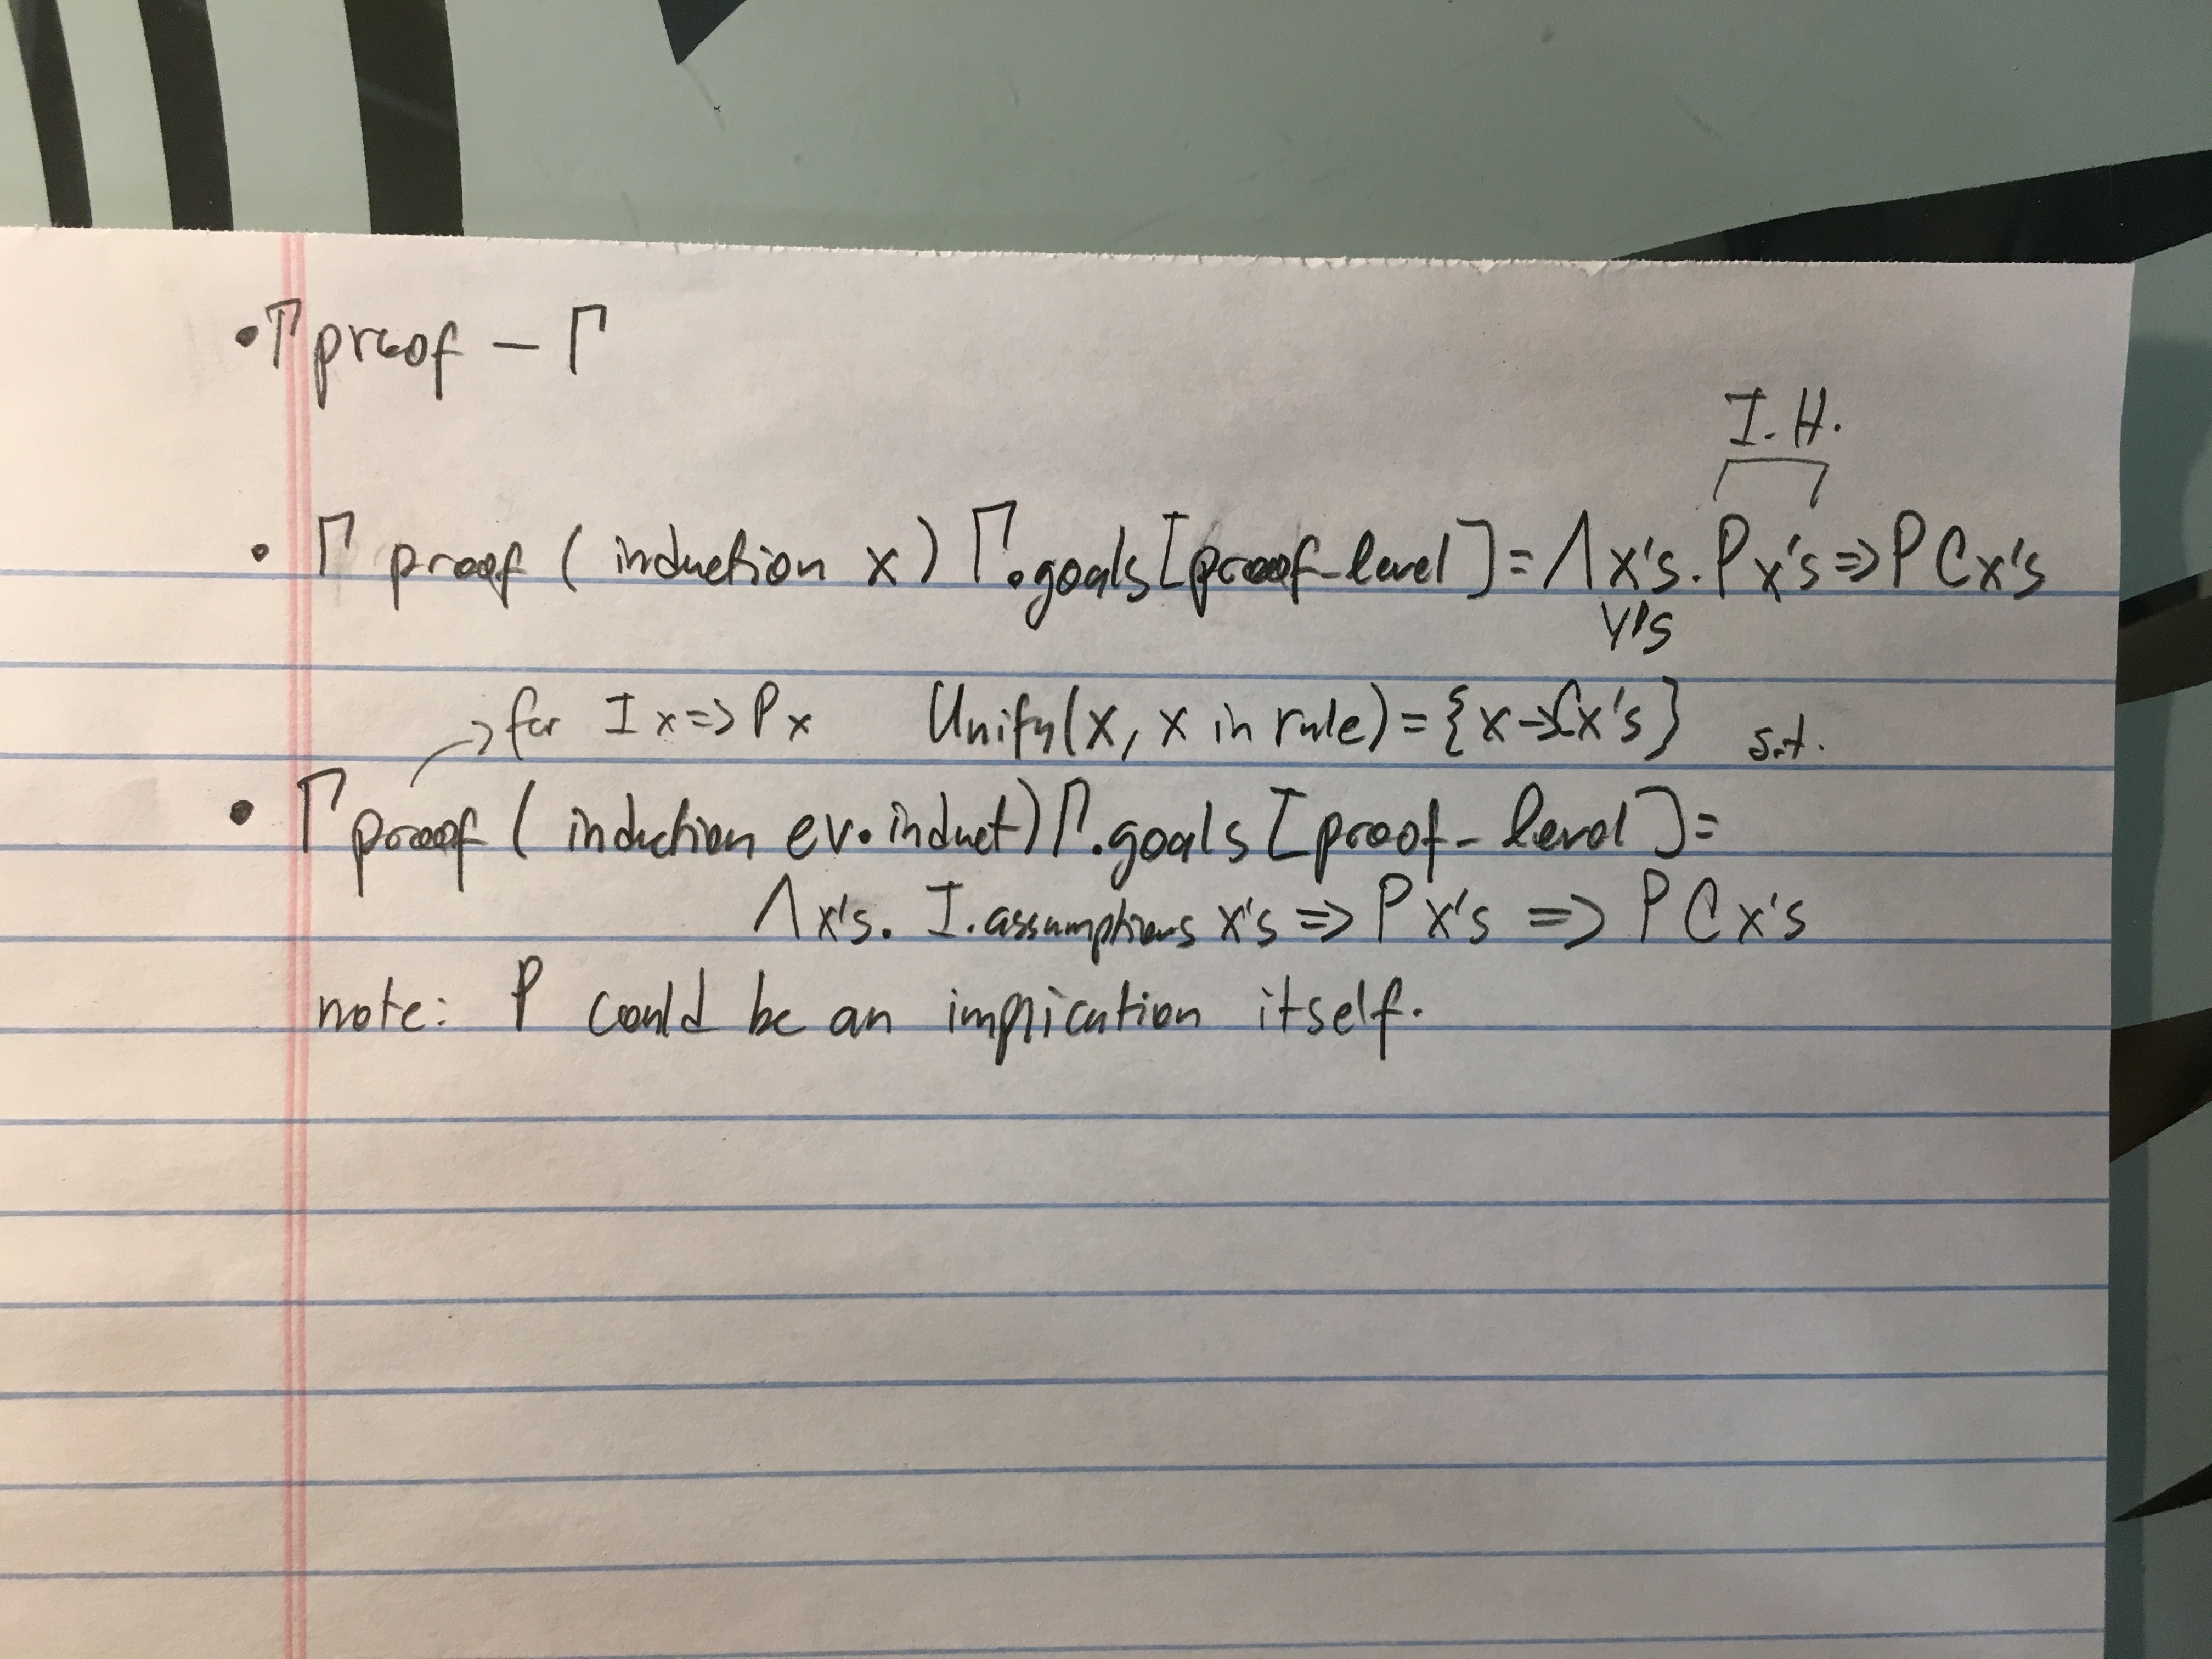 • Γ proof – Γ
I.H.
• Γ proof ( induction x ) Γ.goals[proof-level] = Λ x's. P x's => P C x's
y's
→ for I x => P x Unify(x, x in rule) = {x → C x's} s.t.
• Γ proof ( induction ev.induct) Γ.goals [proof-level] =
Λ x's. I.assumptions x's => P x's => P C x's
note: P could be an implication itself.